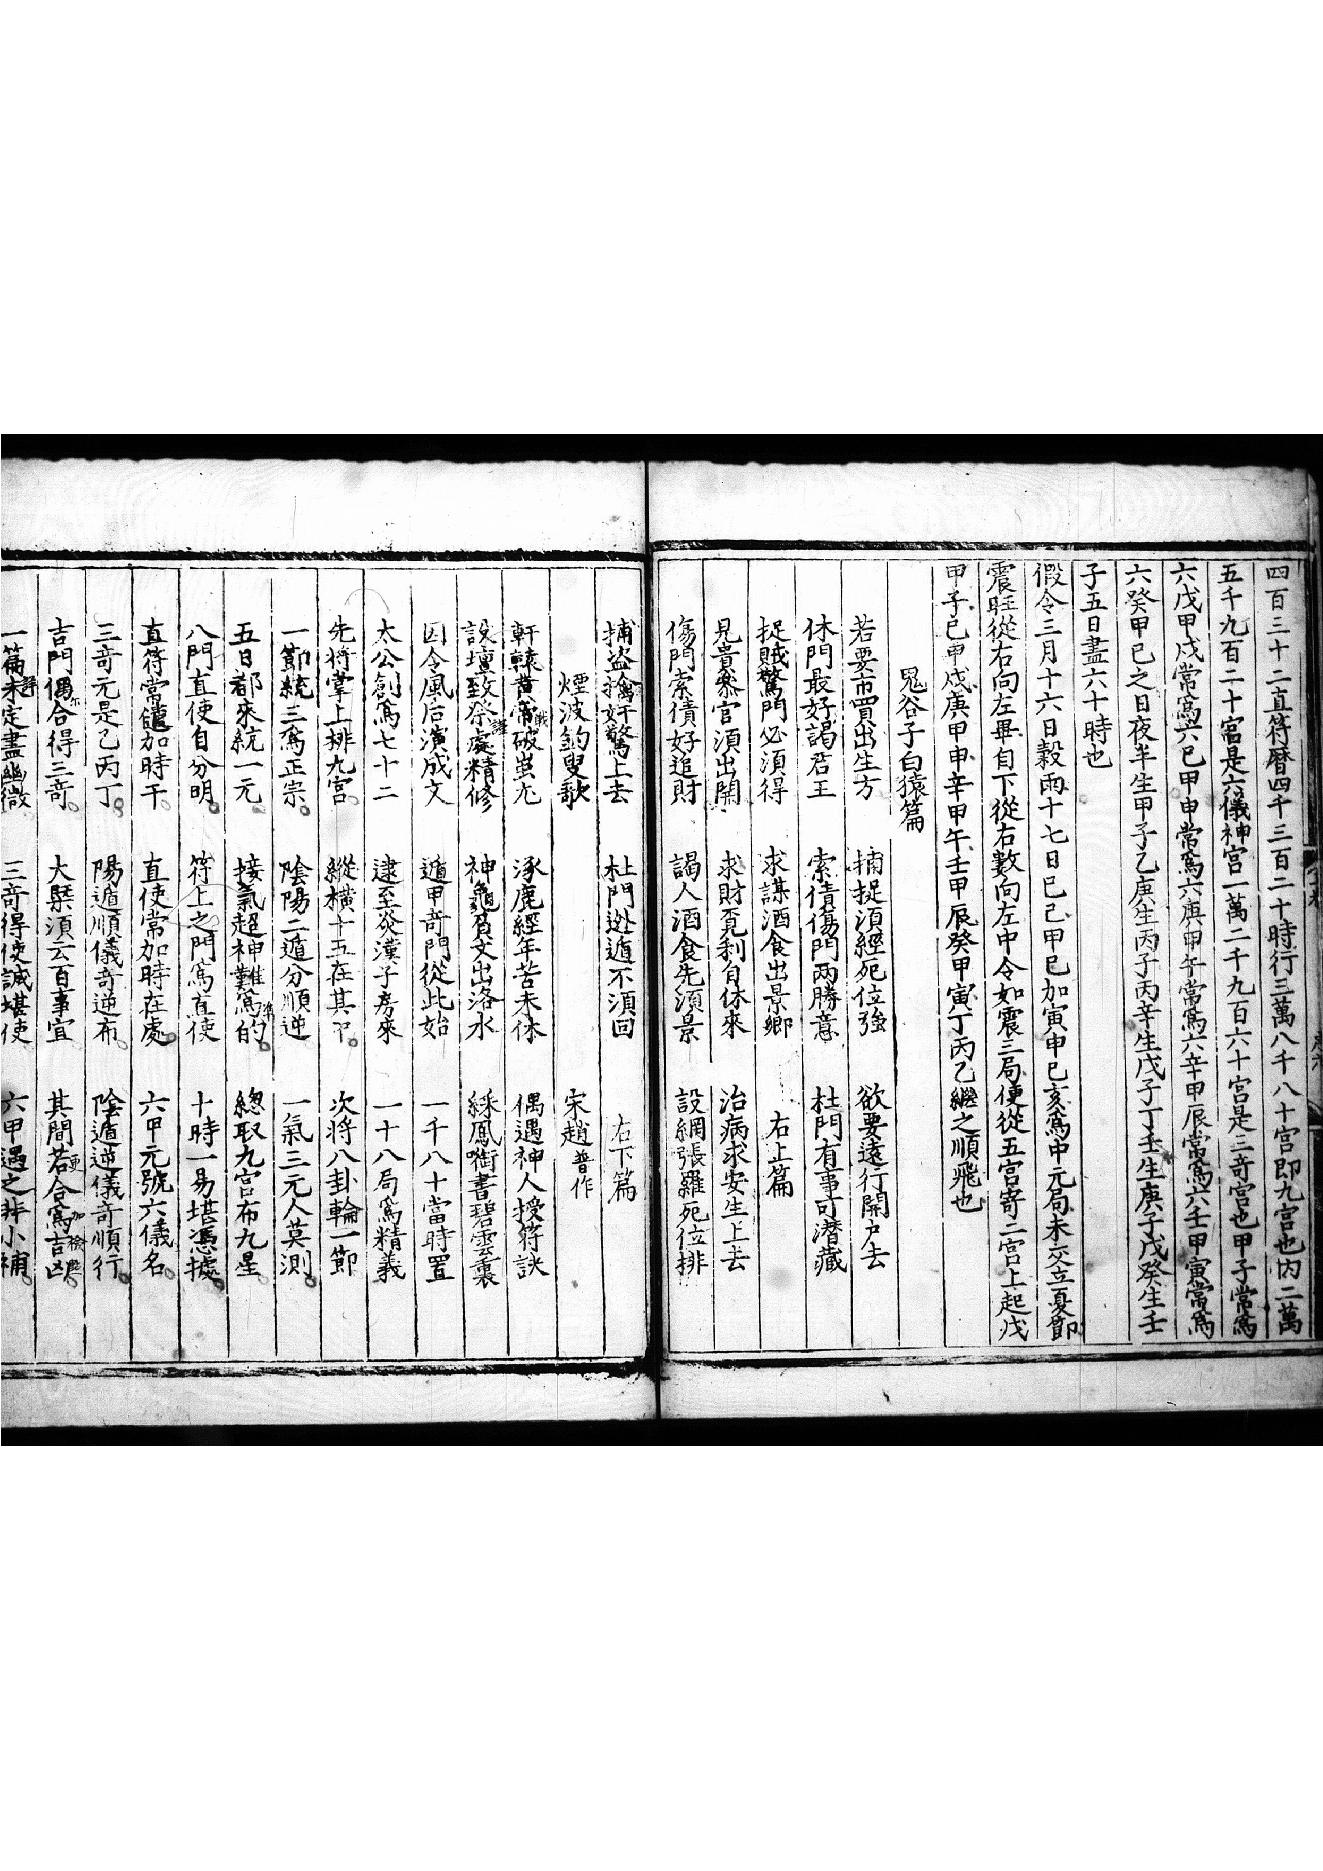 四百三十二直符曆四千三百二十時行三萬八千八十宮即九宮也內二萬
五千九百二十宮是六儀神宮一萬二千九百六十宮是三奇宮也甲子常爲
六戊甲戌常爲六己甲申常爲六庚甲午常爲六辛甲辰常爲六壬甲寅常爲
六癸甲己之日夜半生甲子乙庚生丙子丙辛生戊子丁壬生庚子戊癸生壬
子五日盡六十時也
假令三月十六日穀雨十七日巳己甲巳加寅申巳亥爲中元局未交立夏節
震旺從右向左毋自下從右數向左中令如震三局便從五宮寄二宮上起戊
甲子己甲戌庚甲申辛甲午壬甲辰癸甲寅丁丙乙繼之順飛也
鬼谷子白猿篇
若要市買出生方 捕捉須經死位強 欲要遠行開户去
休門最好謁君王 索債傷門兩勝意 杜門有事可潜藏
捉賊驚門必須得 求謀酒食出景鄉 右上篇
見貴慕官須出開 求財覓利自休來 治病求安生上去
傷門索債好追財 謁人酒食先須景 設網張羅死位排
捕盗擒奸驚上去 杜門逊遁不須回 右下篇
煙波釣叟歌 宋趙普作
軒轅黃帝破蚩尤 涿鹿經年苦未休 偶遇神人授符訣
設壇致祭處精修 神龜負文出洛水 綵鳳啣書碧雲裏
因令風后演成文 遁甲奇門從此始 一千八十當時置
太公創爲七十二 逮至炎漢子房來 一十八局爲精義
先將掌上排九宮 縱橫十五在其中 次將八卦輪一節
一節統三爲正宗 陰陽二遁分順逆 一氣三元人莫測
五日都來統一元 接氣超神難爲的 總取九宮布九星
八門直使自分明 符上之門爲直使 十時一易堪憑據
直符常遣加時干 直使常加時在處 六甲元號六儀名
三奇元是乙丙丁 陽遁順儀奇逆布 陰遁逆儀奇順行
吉門偶合得三奇 大槩須云百事宜 其間若合爲吉凶
一篇未定盡幽微 三奇得使誠堪使 六甲遇之非小補